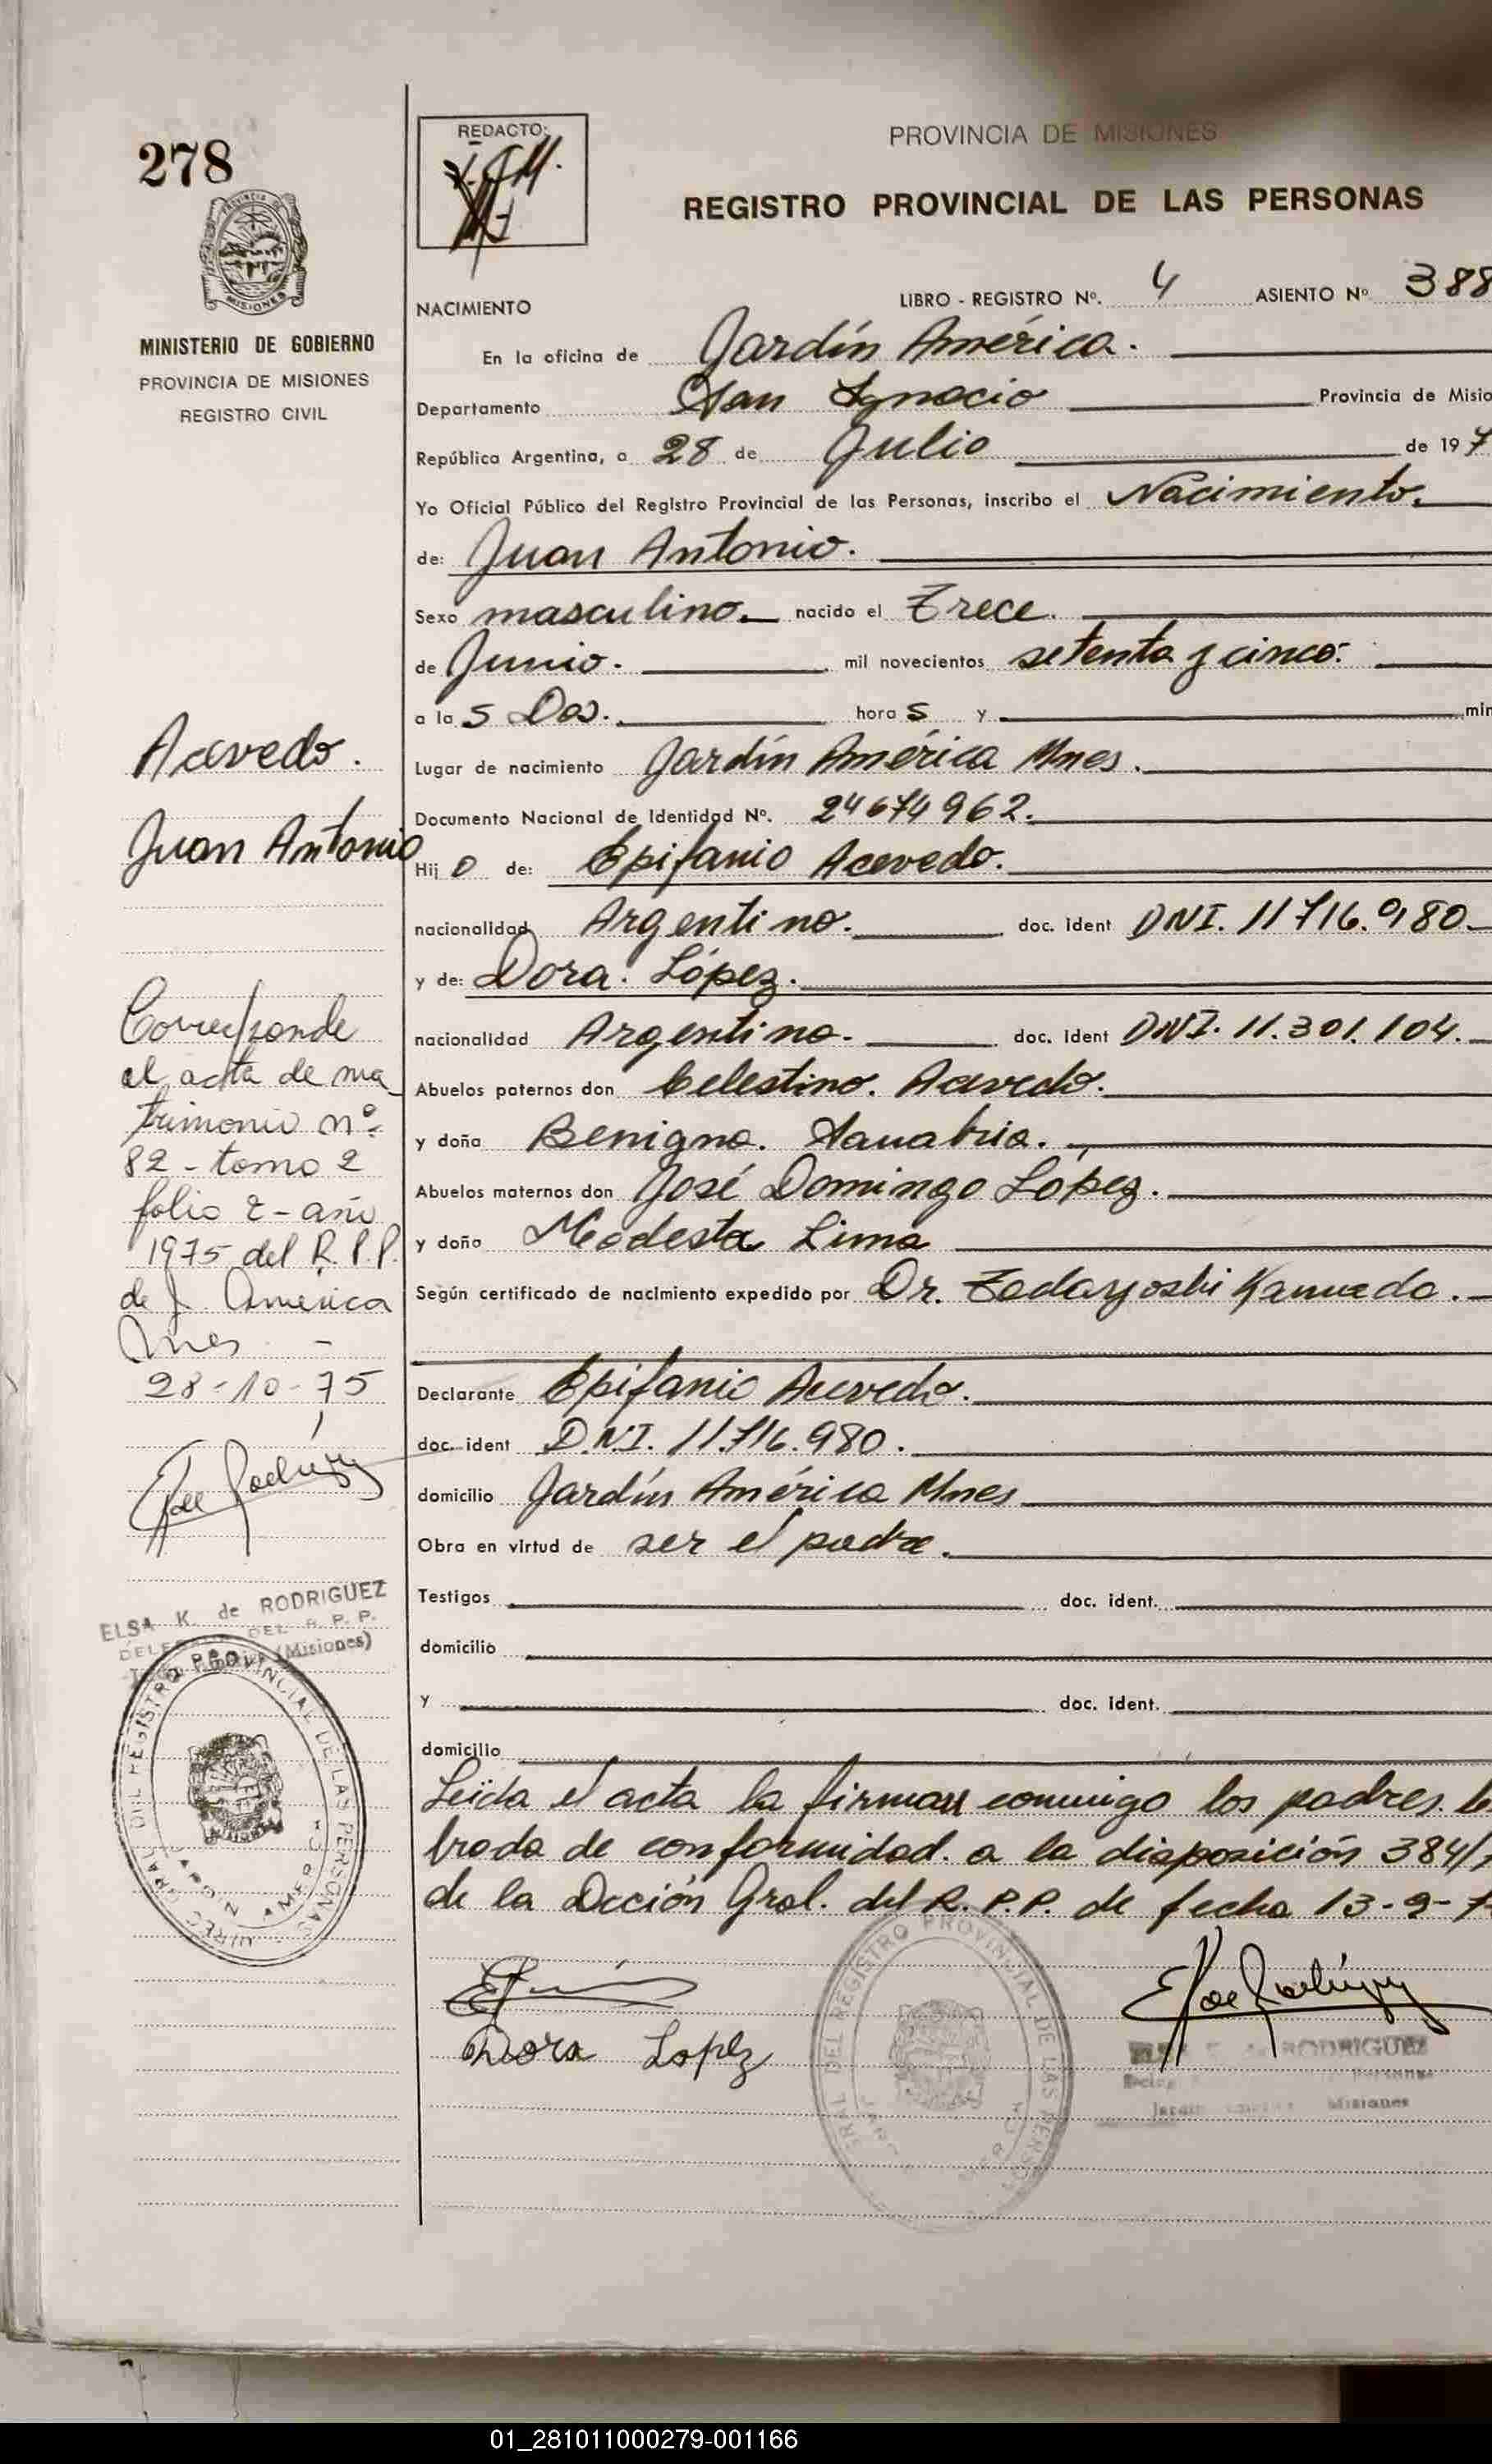 278
MINISTERIO DE GOBIERNO
PROVINCIA DE MISIONES
REGISTRO CIVIL
Acevedo.
Juan Antonio
Corresponde
al acta de ma
trimonio nº
82 - tomo 2
folio 2 - año
1975 del R.P.P.
de J. America
Mnes -
28-10-75
ELSA K. de RODRIGUEZ
DEL R. P. P.
(Misiones)
REDACTO:
PROVINCIA DE MISIONES
REGISTRO PROVINCIAL DE LAS PERSONAS
LIBRO - REGISTRO Nº. 4 ASIENTO Nº 388
NACIMIENTO
En la oficina de Jardín América.
Departamento San Ignacio Provincia de Misio
República Argentina, a 28 de Julio de 197
Yo Oficial Público del Registro Provincial de las Personas, inscribo el Nacimiento.
de: Juan Antonio.
Sexo masculino. nacido el Trece.
de Junio. mil novecientos setenta y cinco.
a la s Dos. hora s y min
Lugar de nacimiento Jardín América Mnes.
Documento Nacional de Identidad Nº. 24674962.
Hij o de: Epifanio Acevedo.
nacionalidad Argentino. doc. ident DNI. 11716.980.
y de: Dora. López.
nacionalidad Argentina. doc. ident DNI. 11.301.104.
Abuelos paternos don Celestino. Acevedo.
y doña Benigna. Sanabria.
Abuelos maternos don José Domingo López.
y doña Modesta Lima
Según certificado de nacimiento expedido por Dr. Tadayoshi Kamada.
Declarante Epifanio Acevedo.
doc. ident D.N.I. 11.716.980.
domicilio Jardín América Mnes
Obra en virtud de ser el padre.
Testigos doc. ident.
domicilio
y doc. ident.
domicilio
Leída el acta la firman conmigo los padres. la
brada de conformidad. a la disposición 384/
de la Dcción Gral. del R.P.P. de fecha 13-9-7
Dora Lopez
RODRIGUEZ
Misiones
01_281011000279-001166